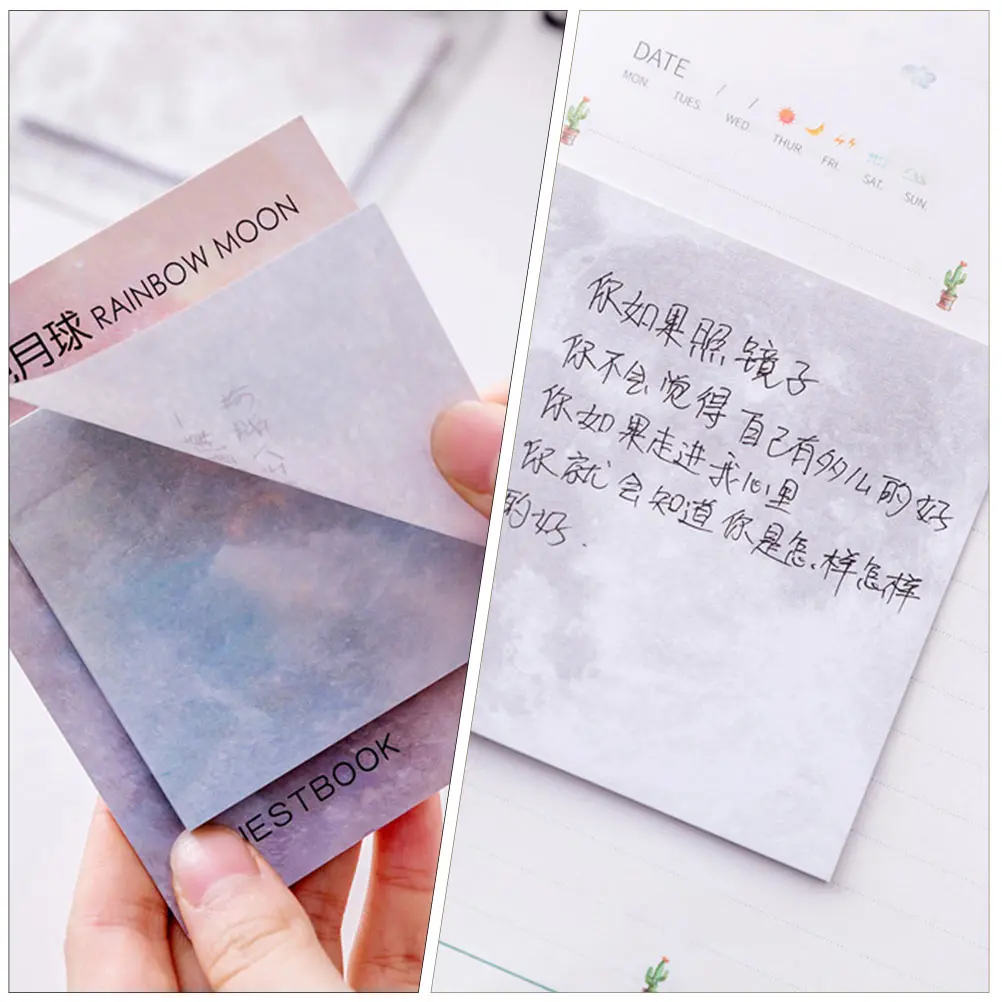 月球 RAINBOW MOON
ESTBOOK
DATE / /
MON. TUES. WED. THUR. FRI. SAT. SUN.
你如果照镜子
你不会觉得自己有多么的好
你如果走进我心里
你就会知道你是怎样怎样
的好.